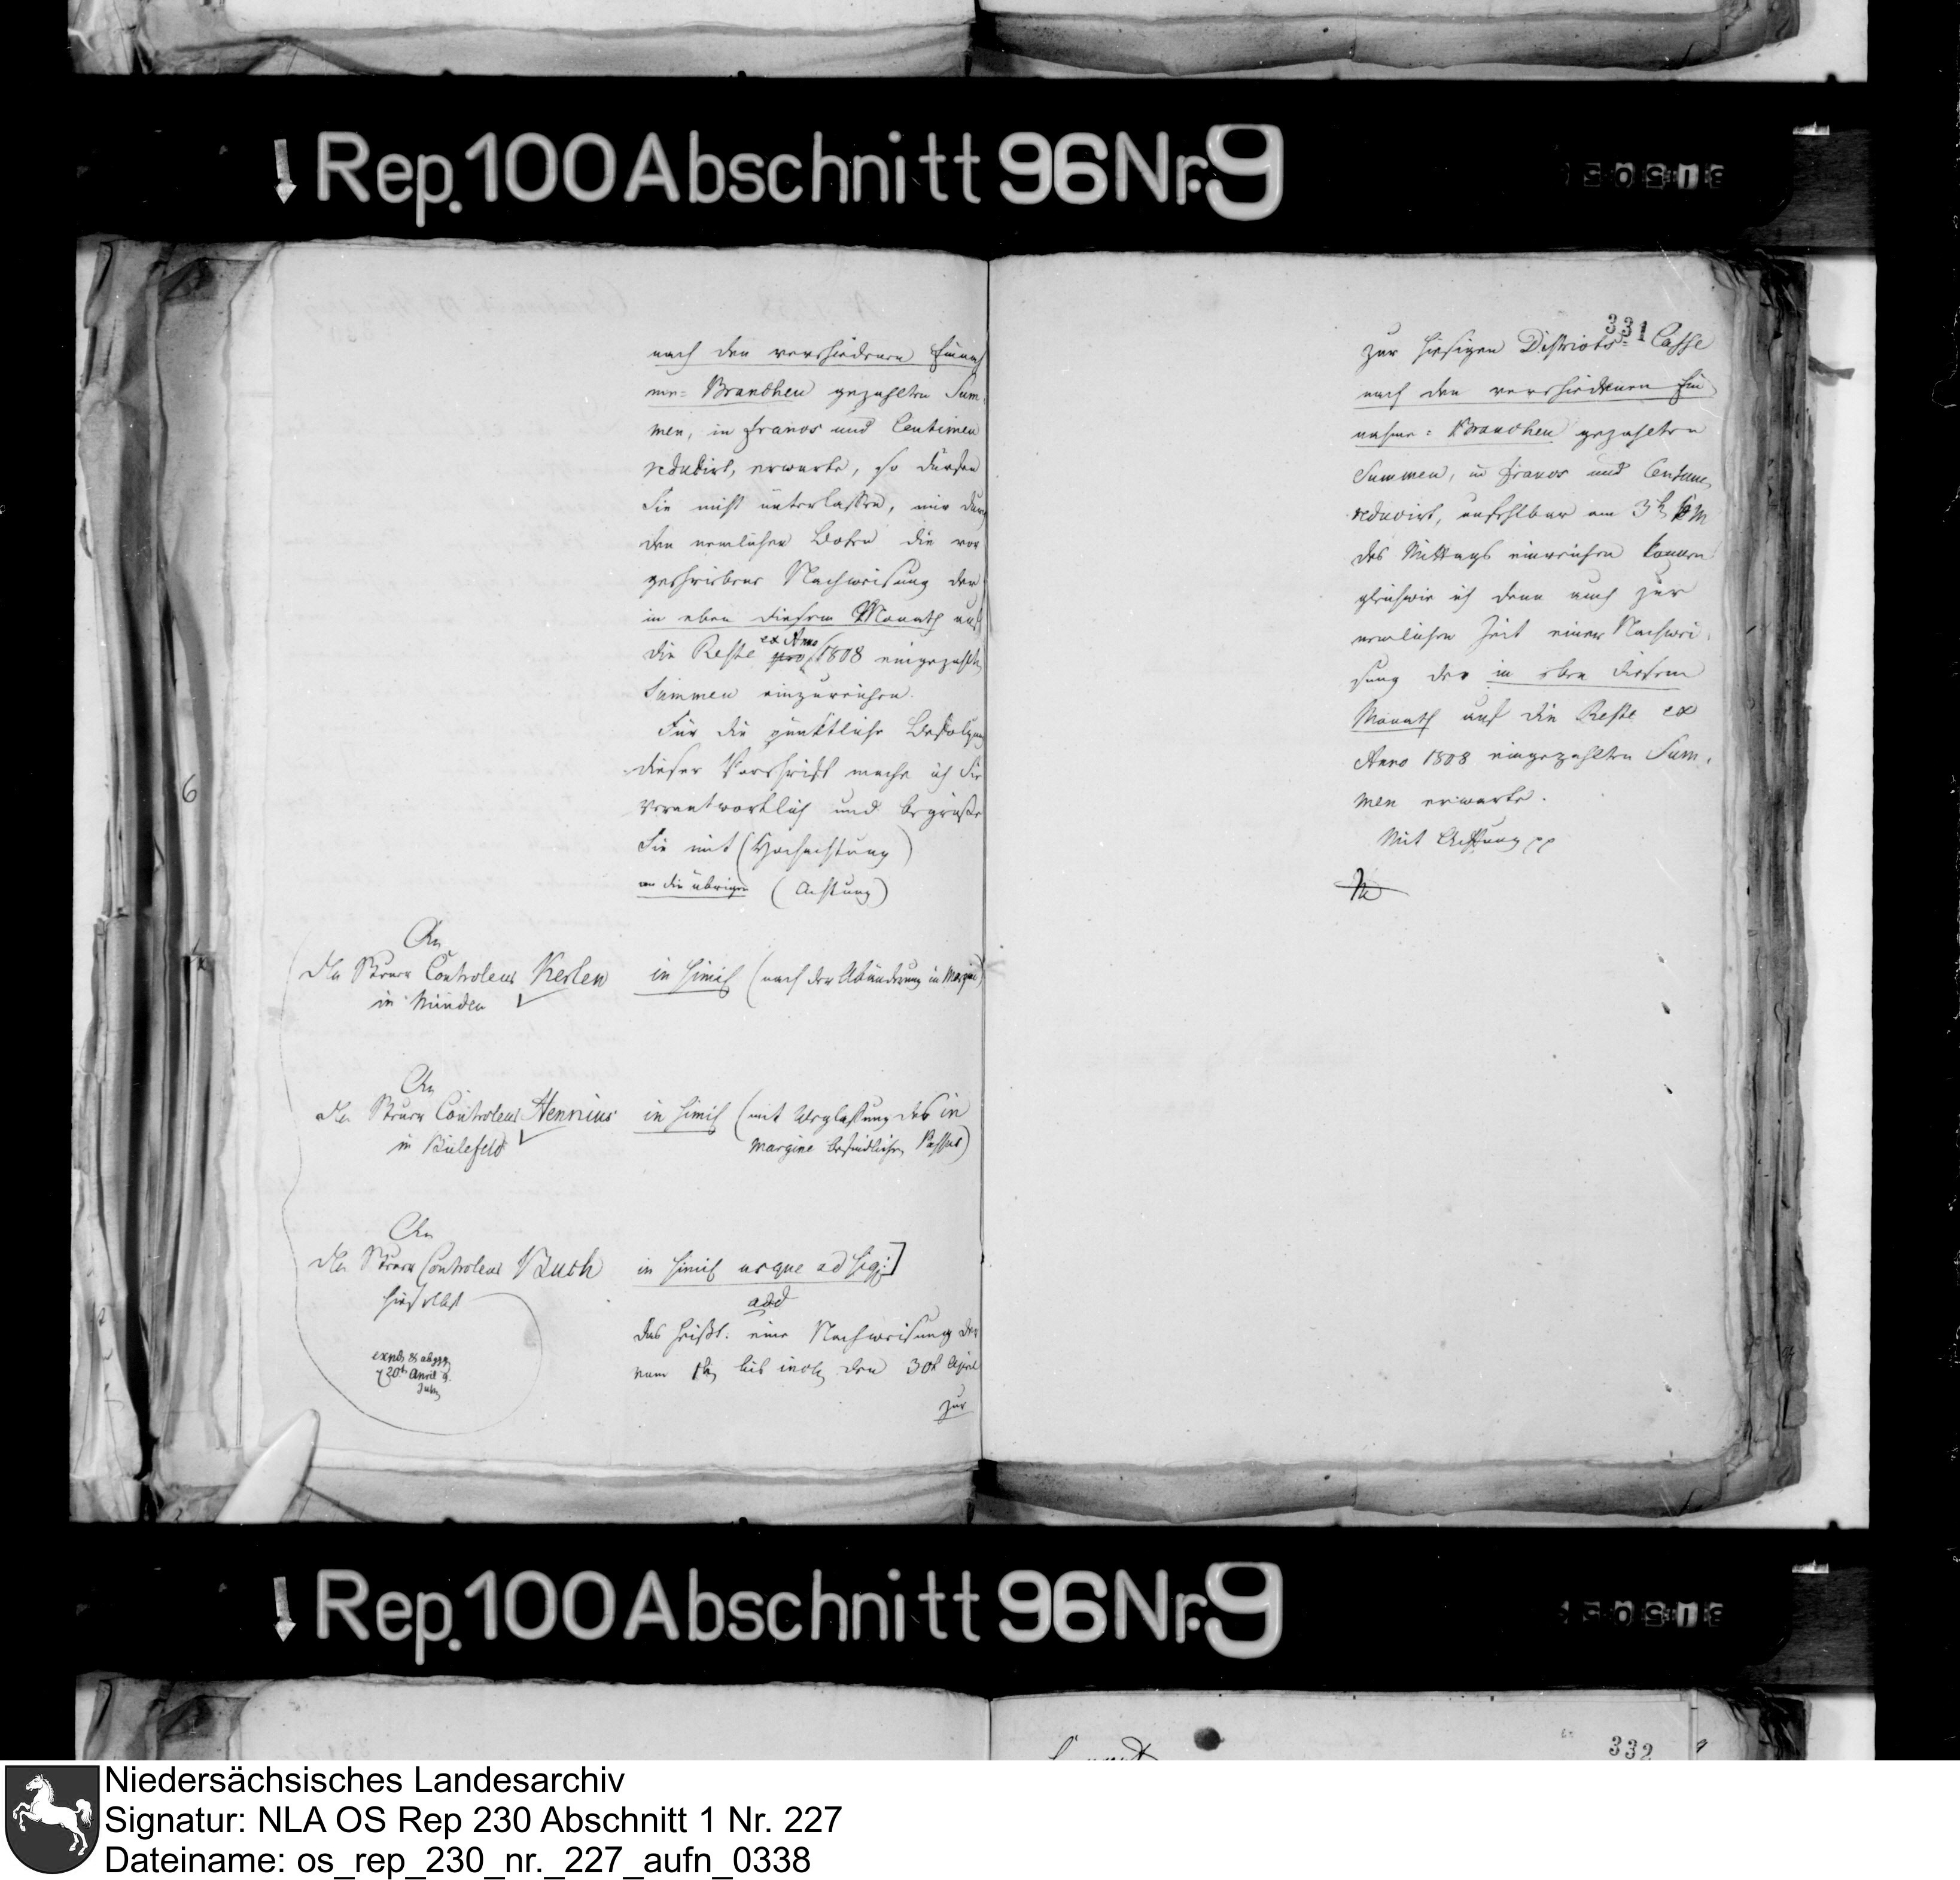 Rep. 100 Abschnitt 96 Nr. 9
nach den verschiedenen Einnah
me= Branchen gezahlten Sum,
men, in Francs und Centimen
reducirt, erwarte, so dürfen
Sie nicht unterlassen, mir durch
den nemlichen Boten die vor
geschriebene Nachweisung der
in eben diesem Monath auf
die Reste ex Anno 1808 eingezahlten
Summen einzureichen.
Für die pünktliche Befolgung
dieser Vorschrift mache ich Sie
verantwortlich und begrüße
Sie mit (Hochachtung)
an die übrigen (Achtung)
An
den Steuer Controleur Kerlen
in Minden
in simili (nach der Abänderung in Margine)
An
den Steuer Controleur Hennius
in Bielefeld
in simili (mit Weglaßung des in
margine befindlichen Passus)
An
den Steuer Controleur Buch
hieselbst
in simili usque ad sig:]
add
das heißt. eine Nachweisung der
vom 1t bis incl den 30t April
zur
20t April
331
zur hiesigen Districts= Casse
nach den verschiedenen Ein
nahme= Branchen gezahlten
Summen, in Francs und Centimen
reducirt, unfehlbar am 3t
des Mittags einreichen können
gleichwie ich denn auch zur
nemlichen Zeit einer Nachwei,
sung der in eben diesem
Monath auf die Reste ex
Anno 1808 eingezahlten Sum,
men erwarte.
Mit Achtung pp
6
Rep. 100 Abschnitt 96 Nr. 9
332
Niedersächsisches Landesarchiv
Signatur: NLA OS Rep 230 Abschnitt 1 Nr. 227
Dateiname: os_rep_230_nr._227_aufn_0338